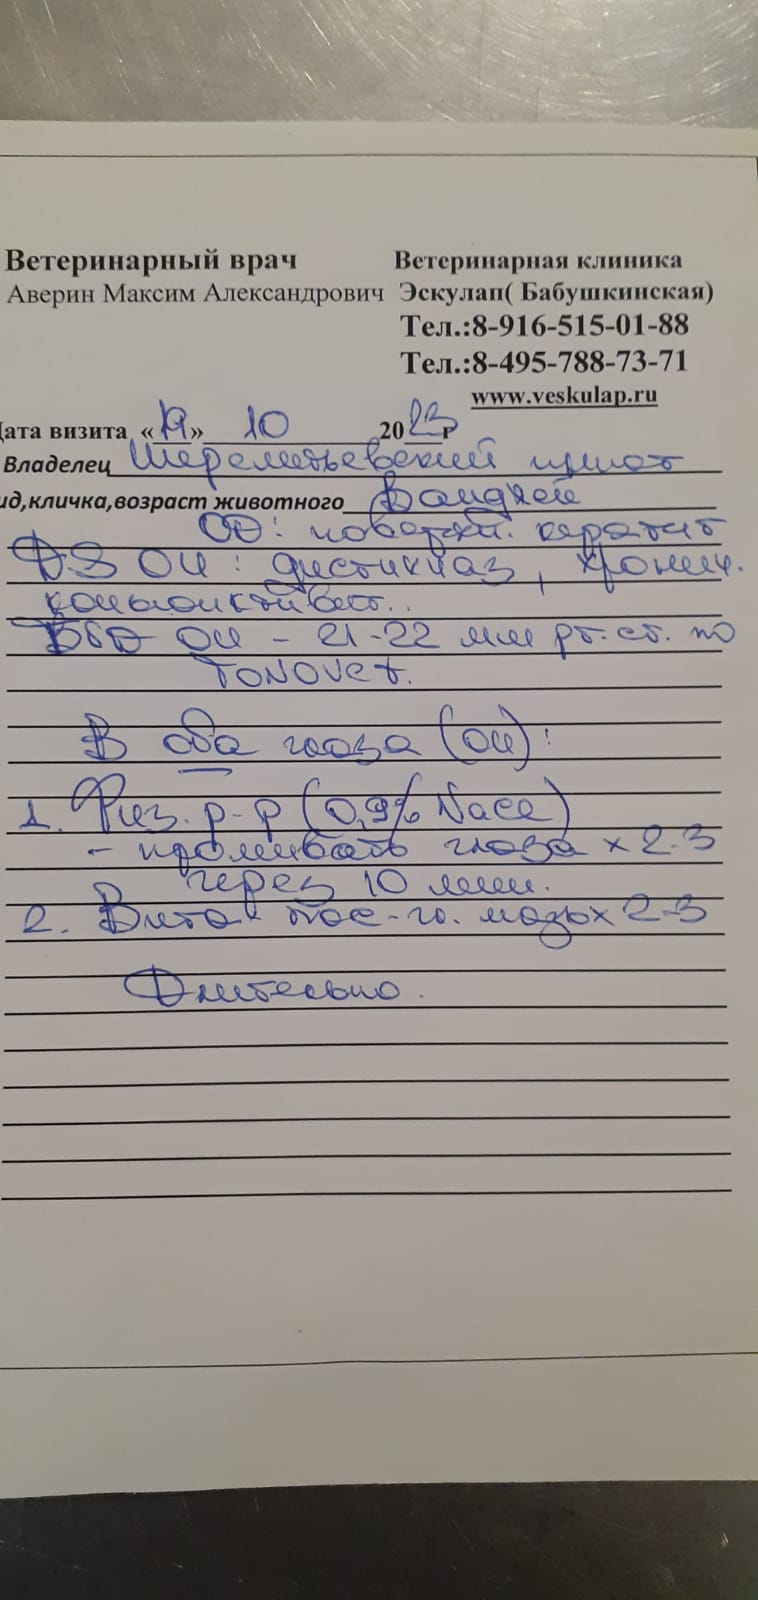 Ветеринарный врач Ветеринарная клиника
Аверин Максим Александрович Эскулап( Бабушкинская)
Тел.:8-916-515-01-88
Тел.:8-495-788-73-71
www.veskulap.ru
Дата визита «19» 10 2023г
Владелец Шереметьевский приют
ид,кличка,возраст животного
OD: поверхн. кератит
DS OU: дистихиаз, хронич.
конъюнктивит..
ВГД OU - 21-22 мм рт. ст. по
TONOVET.
В оба глаза (OU):
1. Физ. р-р (0,9% NaCl)
- промывать глаза х 2-3
через 10 мин.
2. Вита-пос-гл. мазь х 2-3
Длительно.